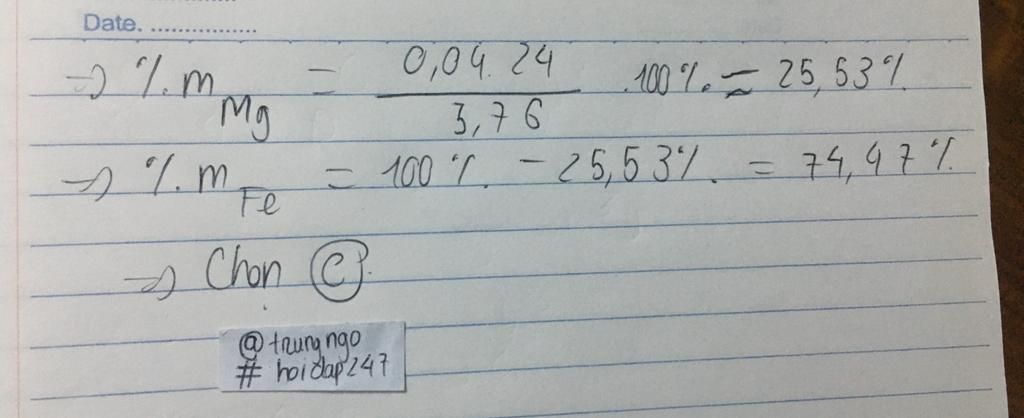 Date. ................
=> %.m Mg = 0,04.24 / 3,76 .100%. ≈ 25,53%.
=> %.m Fe = 100%. - 25,53%. = 74,47%.
=> Chọn C.
@trungngo
# hoidap247